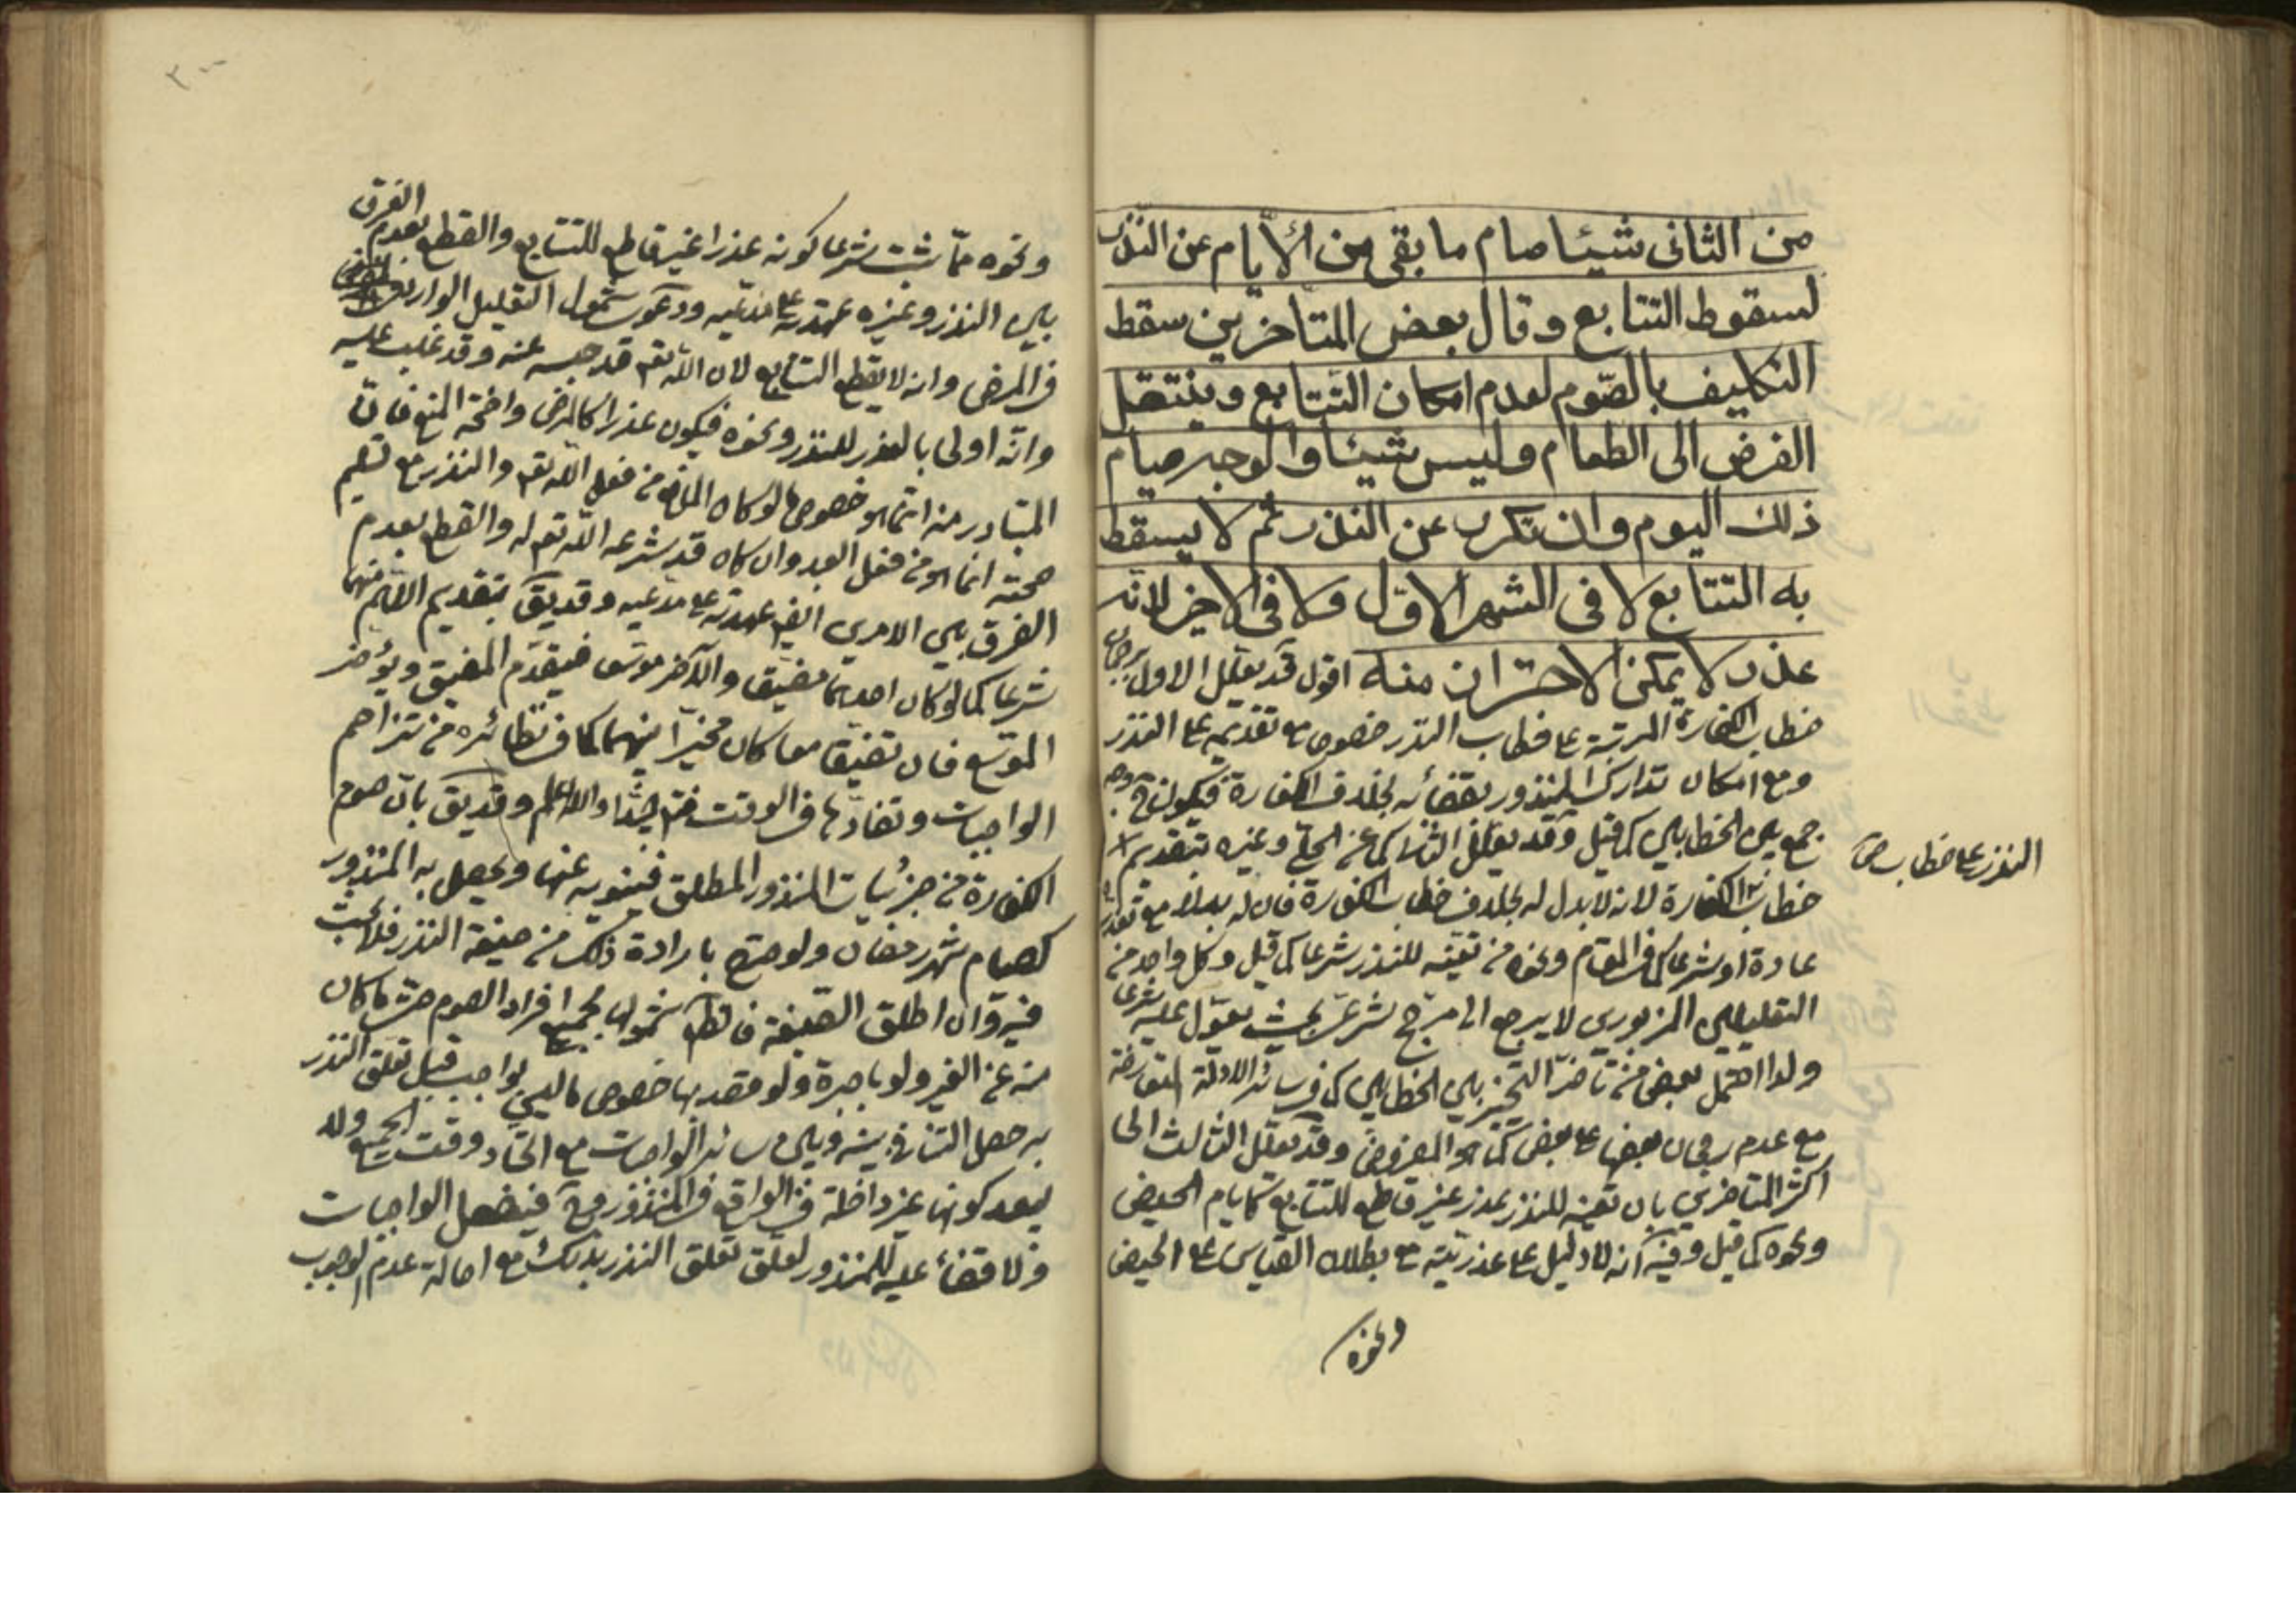 من الثانى شيئا صام ما بقى من الأيام عن النذر
لسقوط التتابع وقال بعض المتاخرين سقط
التكليف بالصّوم لعدم امكان التتابع وينتقل
الفرض الى الطعام وليس شيئا والوجه صيام
ذلك اليوم وان تكرر عن النذر ثم لا يسقط
به التتابع لا فى الشهر الاوّل ولا فى الاخير لانّه
عذر لا يمكن الاحتراز منه اقول قد يعلل الاول برجحان
خطاب الكفارة المرتبة على خطاب النذر خصوصا مع تقديمه على النذر
ومع امكان تدارك المنذور بقضائه بخلاف الكفارة فيكون ح وجه
جمع بين الخطابين كما قيل وقد يعلل الثانى كما عن الحلى وغيره بتقديم
النذر على خطاب
خطاب الكفارة لانه لا بدل له بخلاف خطاب الكفارة فان له بدلا مع تعذره
عادة او شرعا كما فى المقام ونحوه من تعينه للنذر شرعا كما قيل وكل واحد من
التعليلين المزبورين لا يرجع الى مرجح شرعى بحيث يعول عليه شرعا
ولذا احتمل بعض من تاخر التخيير بين الخطابين كما فى سائر الادلة المتعارضة
مع عدم رجحان بعضها على بعض كما هو المفروض وقد يعلل الثالث الى
اكثر المتاخرين بان تعينه للنذر عذر غير قاطع للتتابع كايام الحيض
ونحوه كما قيل وفيه انه لا دليل على عذريته مع بطلان القياس على الحيض
ونحوه
ونحوه ممّا ثبت شرعا كونه عذرا غير قاطع للتتابع والقطع بعدم الفرق
بين النذر وغيره عهدته على مدعيه ودعوى شمول التعليل الوارد
فى المرض وانه لا يقطع التتابع لان الله تعم قد حبسه عنه وقد غلب عليه
وانّه اولى بالعذر للنذر ونحوه فيكون عذرا كالمرض واضحة المنع فان
المتبادر منه انما هو خصوص ما لو كان المانع من فعل الله تعم والنذر مع تسليم
صحته انما هو من فعل العبد وان كان قد شرعه الله تعم له والقطع بعدم
الفرق بين الامرين ايض عهدته على مدعيه وقد يق بتقديم الاهم منهما
شرعا كما لو كان احدهما مضيق والآخر موسع فيقدم المضيق ويؤخر
الموسع فان تضيقا معا كان مخيرا بينهما كما فى نظائره من تزاحم
الواجبات وتضادها فى الوقت جدا والله العالم وقد يق بان صوم
الكفارة من جزئيات المنذور المطلق فينويه عنها ويحصل به المنذور
كصيام شهر رمضان ولو صرح بارادة ذلك من صيغة النذر فلا بحث
فيه وان اطلق الصيغة فالظ شمولها لجميع افراد الصوم حتى ما كان
منه عن الغير ولو باجرة ولو قصد بها خصوص ما ليس بواجب قبل تعلق النذر
به حصل التنافى بينه وبين سائر الواجبات مع اتحاد وقت الجميع ولا
يبعد كونها غير داخلة فى الواقع فى المنذور وح فيفعل الواجبات
ولا قضاء عليه للمنذور لعدم تعلق النذر بذلك مع اصالة عدم الوجوب